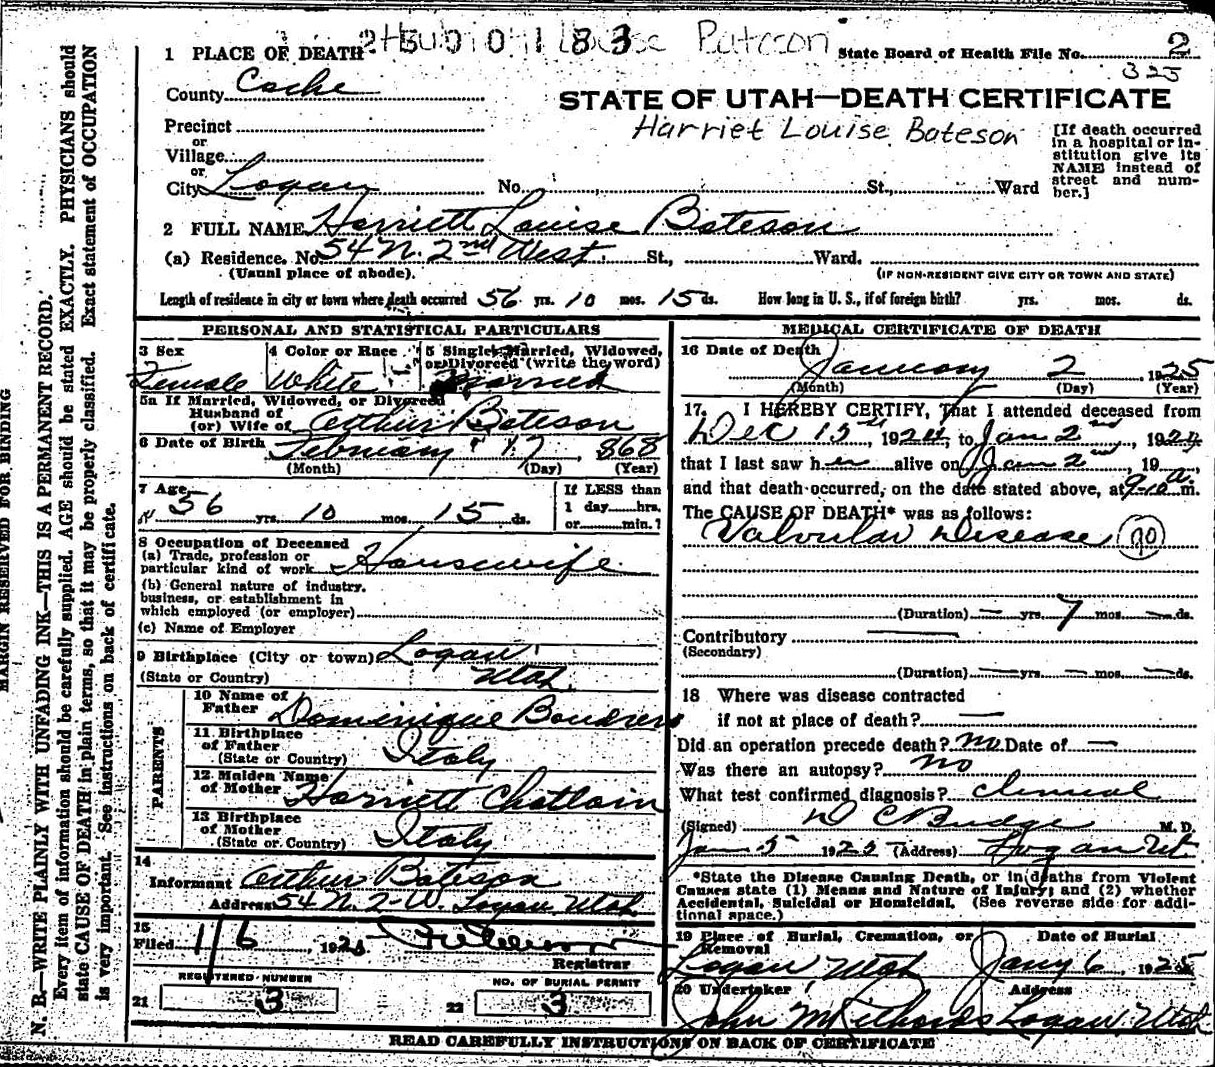 2500183 Louise Bateson
1 PLACE OF DEATH
State Board of Health File No. 2
325
County Cache
STATE OF UTAH—DEATH CERTIFICATE
Harriet Louise Bateson
Precinct
or
Village
or
City Logan No. St., Ward
[If death occurred
in a hospital or in-
stitution give its
NAME instead of
street and num-
ber.]
2 FULL NAME Harriett Louise Bateson
(a) Residence. No. 54 N. 2nd West. St., Ward.
(Usual place of abode).
(IF NON-RESIDENT GIVE CITY OR TOWN AND STATE)
Length of residence in city or town where death occurred 56 yrs. 10 mos. 15 ds. How long in U. S., if of foreign birth? yrs. mos. ds.
PERSONAL AND STATISTICAL PARTICULARS
3 Sex
Female
4 Color or Race
White
5 Single, Married, Widowed,
or Divorced (write the word)
Married
5a If Married, Widowed, or Divorced
Husband of
(or) Wife of Arthur Bateson
6 Date of Birth February 17, 868
(Month) (Day) (Year)
7 Age
56 yrs. 10 mos. 15 ds.
If LESS than
1 day hrs.
or min.?
8 Occupation of Deceased
(a) Trade, profession or
particular kind of work Housewife
(b) General nature of industry.
business, or establishment in
which employed (or employer)
(c) Name of Employer
9 Birthplace (City or town) Logan
(State or Country) Utah.
PARENTS
10 Name of
Father Dominique Boudrero
11 Birthplace
of Father
(State or Country) Italy
12 Maiden Name
of Mother Harriett Chatlain
13 Birthplace
of Mother
(State or Country) Italy
14
Informant Arthur Bateson
Address 54 N. 2-W. Logan Utah
15
Filed 1/6 192
Registrar
REGISTERED NUMBER
21 3
NO. OF BURIAL PERMIT
22 3
MEDICAL CERTIFICATE OF DEATH
16 Date of Death
January 2, 1925
(Month) (Day) (Year)
17. I HEREBY CERTIFY, That I attended deceased from
Dec 15th, 1924, to Jan 2nd, 1924
that I last saw her alive on Jan 2nd, 19
and that death occurred, on the date stated above, at 9-10 a. m.
The CAUSE OF DEATH* was as follows:
Valvular Disease 90
(Duration) — yrs. 7 mos. — ds.
Contributory —
(Secondary)
(Duration) — yrs. — mos. — ds.
18 Where was disease contracted
if not at place of death? —
Did an operation precede death? no Date of —
Was there an autopsy? no
What test confirmed diagnosis? clinical
(Signed) D C Budge M. D.
Jan 5 1925 (Address) Logan Ut.
*State the Disease Causing Death, or in deaths from Violent
Causes state (1) Means and Nature of Injury; and (2) whether
Accidental, Suicidal or Homicidal. (See reverse side for addi-
tional space.)
19 Place of Burial, Cremation, or
Removal
Logan Utah
Date of Burial
Jany 6, 1925
20 Undertaker
John M Richards
Address
Logan, Utah
READ CAREFULLY INSTRUCTIONS ON BACK OF CERTIFICATE
MARGIN RESERVED FOR BINDING
N. B.—WRITE PLAINLY WITH UNFADING INK—THIS IS A PERMANENT RECORD.
Every item of information should be carefully supplied. AGE should be stated EXACTLY. PHYSICIANS should
state CAUSE OF DEATH in plain terms, so that it may be properly classified. Exact statement of OCCUPATION
is very important. See instructions on back of certificate.